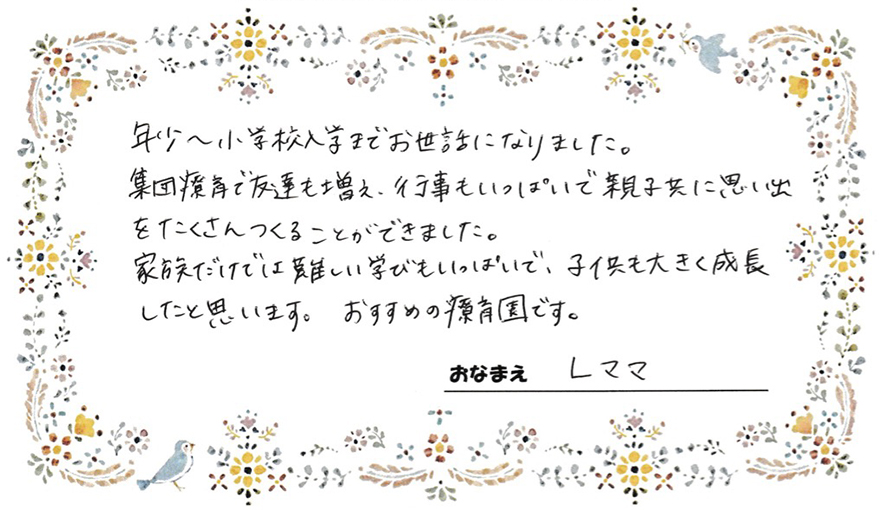 年少～小学校入学までお世話になりました。
集団療育で友達も増え、行事もいっぱいで親子共に思い出
をたくさんつくることができました。
家族だけでは難しい学びもいっぱいで、子供も大きく成長
したと思います。 おすすめの療育園です。
おなまえ Lママ